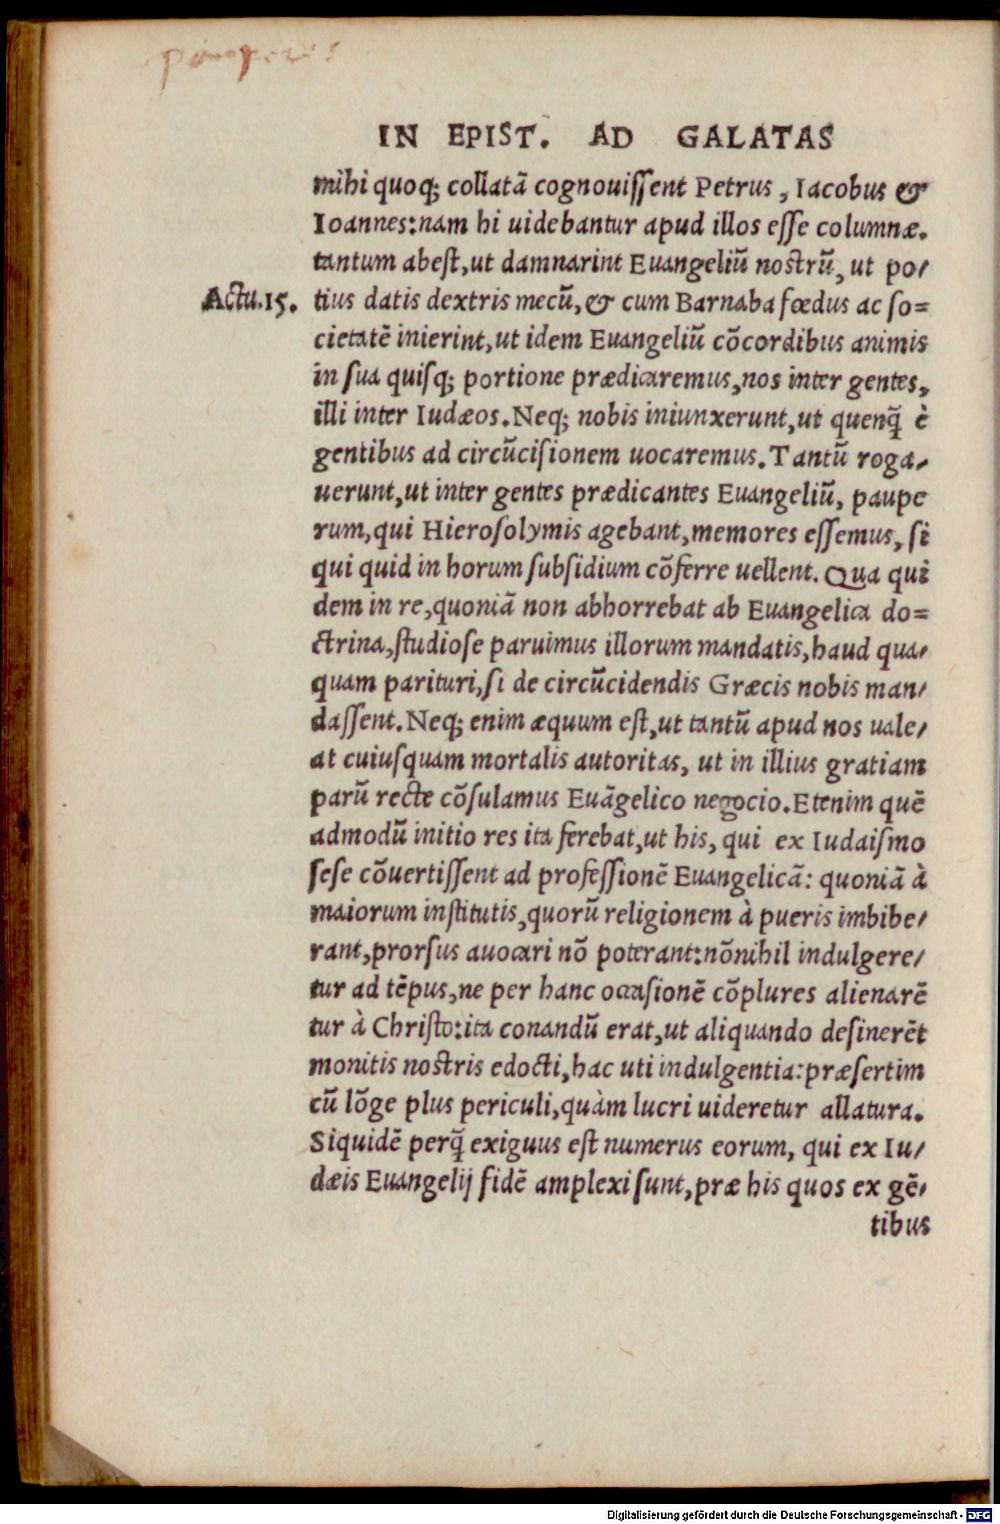 IN EPIST. AD GALATAS
mihi quoq; collatã cognouiſſent Petrus, Iacobus &
Ioannes: nam hi uidebantur apud illos eſſe columnæ.
tantum abeſt, ut damnarint Euangeliũ noſtrũ, ut po/
Actu. 15.
tius datis dextris mecũ, & cum Barnaba fœdus ac ſo=
cietatẽ inierint, ut idem Euangeliũ cõcordibus animis
in ſua quiſq; portione prædicaremus, nos inter gentes,
illi inter Iudæos. Neq; nobis iniunxerunt, ut quenq̃ è
gentibus ad circũciſionem uocaremus. Tantũ roga/
uerunt, ut inter gentes prædicantes Euangeliũ, paupe
rum, qui Hieroſolymis agebant, memores eſſemus, ſi
qui quid in horum ſubſidium cõferre uellent. Qua qui
dem in re, quoniã non abhorrebat ab Euangelica do=
ctrina, ſtudioſe paruimus illorum mandatis, haud qua/
quam parituri, ſi de circũcidendis Græcis nobis man/
daſſent. Neq; enim æquum eſt, ut tantũ apud nos uale/
at cuiuſquam mortalis autoritas, ut in illius gratiam
parũ recte cõſulamus Euãgelico negocio. Etenim quẽ
admodũ initio res ita ferebat, ut his, qui ex Iudaiſmo
ſeſe cõuertiſſent ad profeſſionẽ Euangelicã: quoniã à
maiorum inſtitutis, quorũ religionem à pueris imbibe/
rant, prorſus auocari nõ poterant: nõnihil indulgere/
tur ad tẽpus, ne per hanc occaſionẽ cõplures alienarẽ
tur à Chriſto: ita conandũ erat, ut aliquando deſinerẽt
monitis noſtris edocti, hac uti indulgentia: præſertim
cũ lõge plus periculi, quàm lucri uideretur allatura.
Siquidẽ perq̃ exiguus eſt numerus eorum, qui ex Iu/
dæis Euangelij fidẽ amplexi ſunt, præ his quos ex gẽ/
tibus
Digitalisierung gefördert durch die Deutsche Forschungsgemeinschaft - DFG